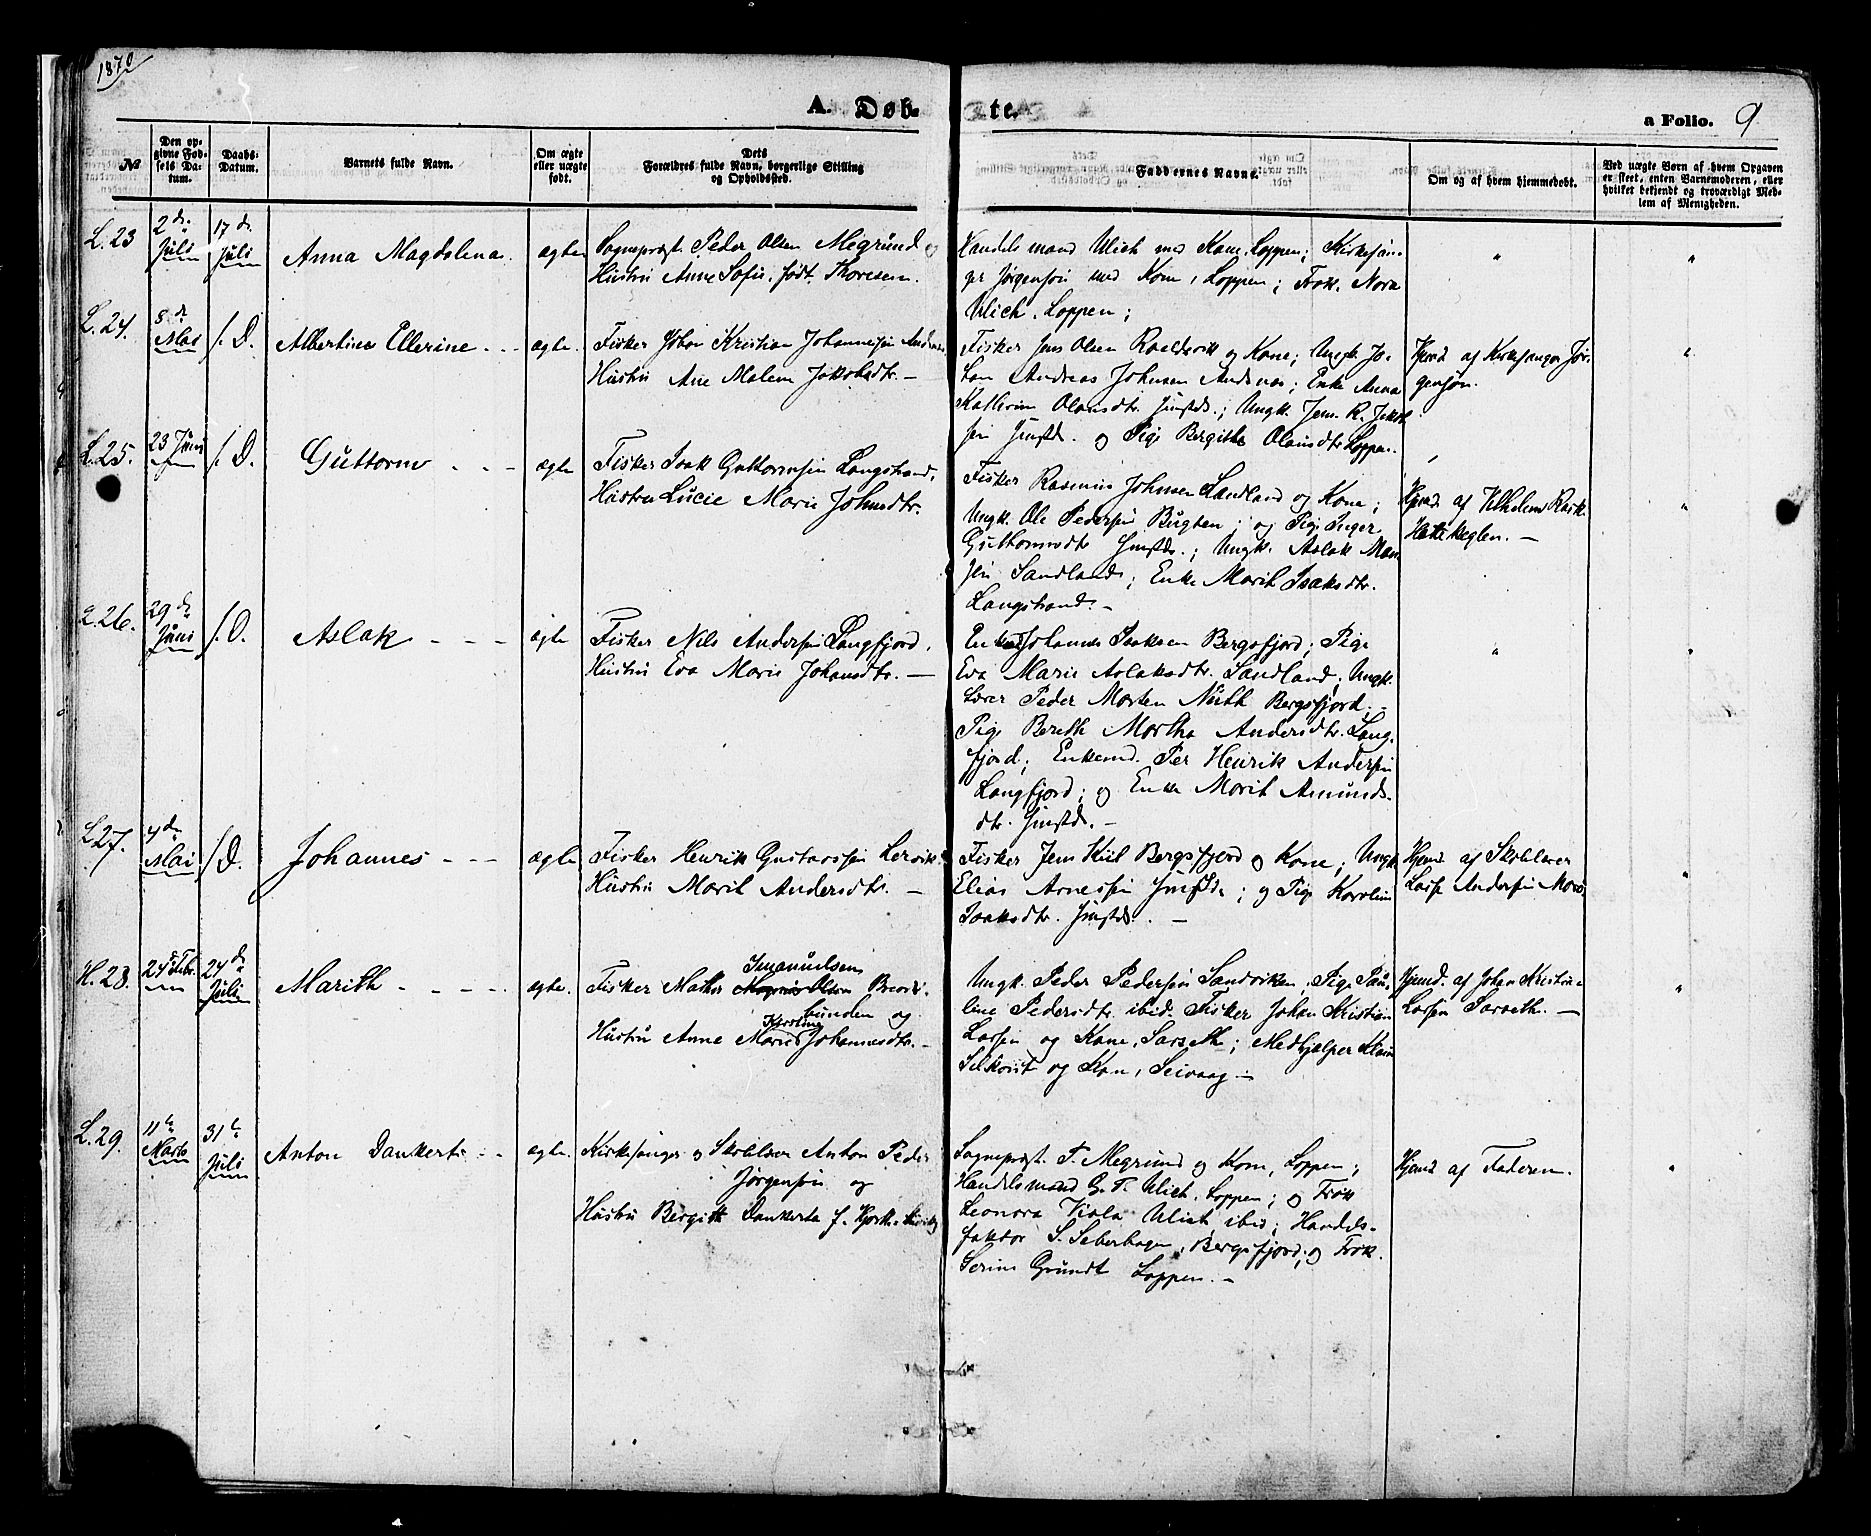 1870
A. Døb-
te.
a Folio. 9
No
Den op-
givne Fød-
sels Da-
tum.
Daabs-
Datum.
Barnets fulde Navn.
Om ægte
eller uægte
født.
Dets
Forældres fulde Navn, borgerlige Stilling
og Opholdssted.
Faddernes Navne.
Om og af hvem hjemmedøbt.
Ved uægte Børn af hvem Opgaven
er skeet, enten Barnemoderen, eller
hvilket bekjendt og troværdigt Med-
lem af Menigheden.
L.23
2 d.
Juli
17 d.
Juli
Anna Magdalena
ægte
Sognepræst Peder Olsen Megrund og
Hustru Anne Sofie, født Thoresen.
Handelsmand Ulich med Kone, Loppen; Kirkesan-
ger Jørgensen med Kone, Loppen; Frøk. Nora
Ulich, Loppen;
L.24.
8 d.
Mai
s. D.
Albertine Ellerine
ægte.
Fisker Johan Kristian Johannessen Andsnæs
Hustru Ane Malene Jakobsdtr. —
Fisker Jens Olsen og Kone; Ungk. Jo-
han Andreas Johnsen Andsnæs; Enke Anna
Kathrine Olausdtr. ; Ungk. Jens R. Jakob-
sen . og Pige Bergithe Olausdtr. Loppen.
Hjemd. af Kirkesanger Jør-
gensen.
L.25.
23 Juni
s. D.
Guttorm
ægte
Fisker Isak Guttormsen Langstrand,
Hustru Lucie Marie Johnsdtr.
Fisker Rasmus Johnsen Sandland og Kone;
Ungk. Ole Pedersen Bugten; og Pige Inger
Guttormsdtr. ; Ungk. Aslak Mon-
sen Sandland; Enke Marit Isaksdtr.
Langstrand. —
Hjemd. af Vilhelm Rask
. —
L.26.
29 d.
Juni
s. D.
Aslak
ægte
Fisker Nils Andersen Langfjord,
Hustru Eva Marie Johansdtr. —
Johannes Isaksen Bergsfjord; Pige
Eva Marie Aslaksdtr. Sandland; Ungk.
Lærer Peder Morten Bergsfjord; —
Pige Bereth Martha Andersdtr. Lang-
fjord; Enkemd. Per Henrik Andersen
Langfjord; og Enke Marit Amunds-
dtr. . —
L.27.
4 d.
Mai
s. D.
Johannes
ægte
Fisker Henrik Gustavssen Lervik.
Hustru Marit Andersdtr. —
Fisker Jens Kiil Bergsfjord og Kone; Ungk.
Elias Arnessen ; og Pige Karoline
Isaksdtr. . —
Hjemd. af Skolelærer
Lasse Andersen
H.28.
24 Febr.
24 d.
Juli
Marith
ægte.
Fisker Mathis Imanuelsen
bunden og
Hustru Anne Marie Karoline Johannesdtr. —
Ungk. Peder Pedersen Sandviken, Pige Pau-
line Pedersdtr. ibid. Fisker Johan Kristian
Larsen og Kone, Sarseth; Medhjælper Klaus
og Kone, Seivaag —
Hjemd. af Johan Kristian
Larsen Sarseth. —
L.29.
11te
Marts
31te
Juli
Anton Dankert
ægte.
Kirkesanger og Skolelærer Anton Peder
Jørgensen og
Hustru Bergith Dankerta f.
Sognepræst P. Megrund og Kone, Loppen;
Handelsmand G. T. Ulich, Loppen; og Frøk
Leonora Viola Ulich ibid; Handels-
faktor S. , Bergsfjord; og Frøk.
Serine Grundt Loppen. —
Hjemd. af Faderen.